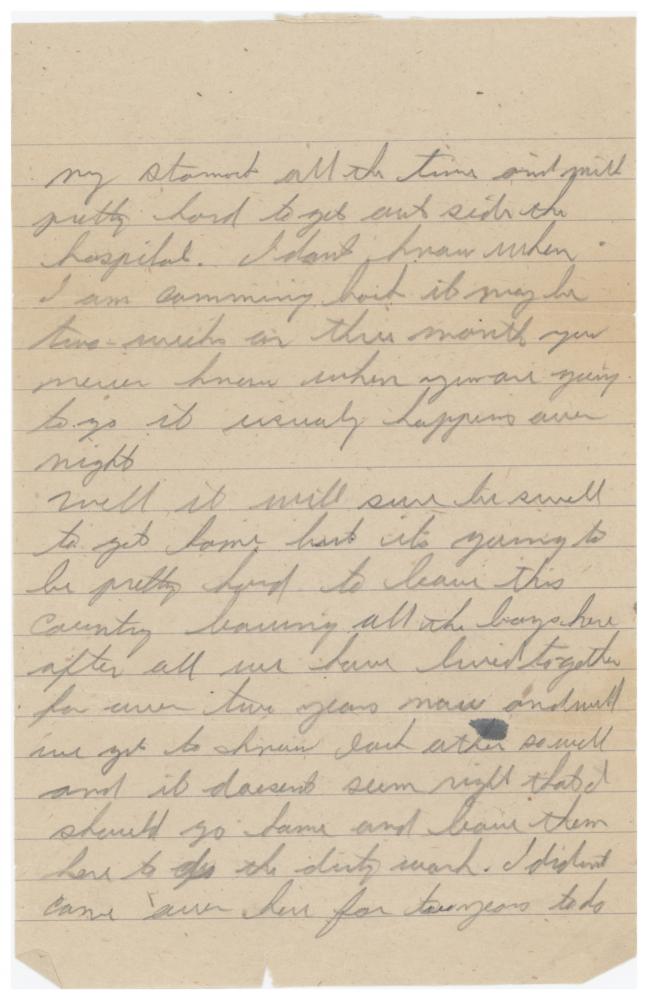 my stomach all the time and will
pretty hard to get out side the
hospital. I dont know when
I am comming back it may be
two-weeks or three month you
never know when you are going
to go it usualy happens over
night
Well it will sure be swell
to get home but its going to
be pretty hard to leave this
Country leaving all the boys here
after all we have lived together
for over two years now and well
we got to know each other so well
and it doesent seem right that I
should go home and leave them
here to do the dirty work. I dident
come over here for two years to do